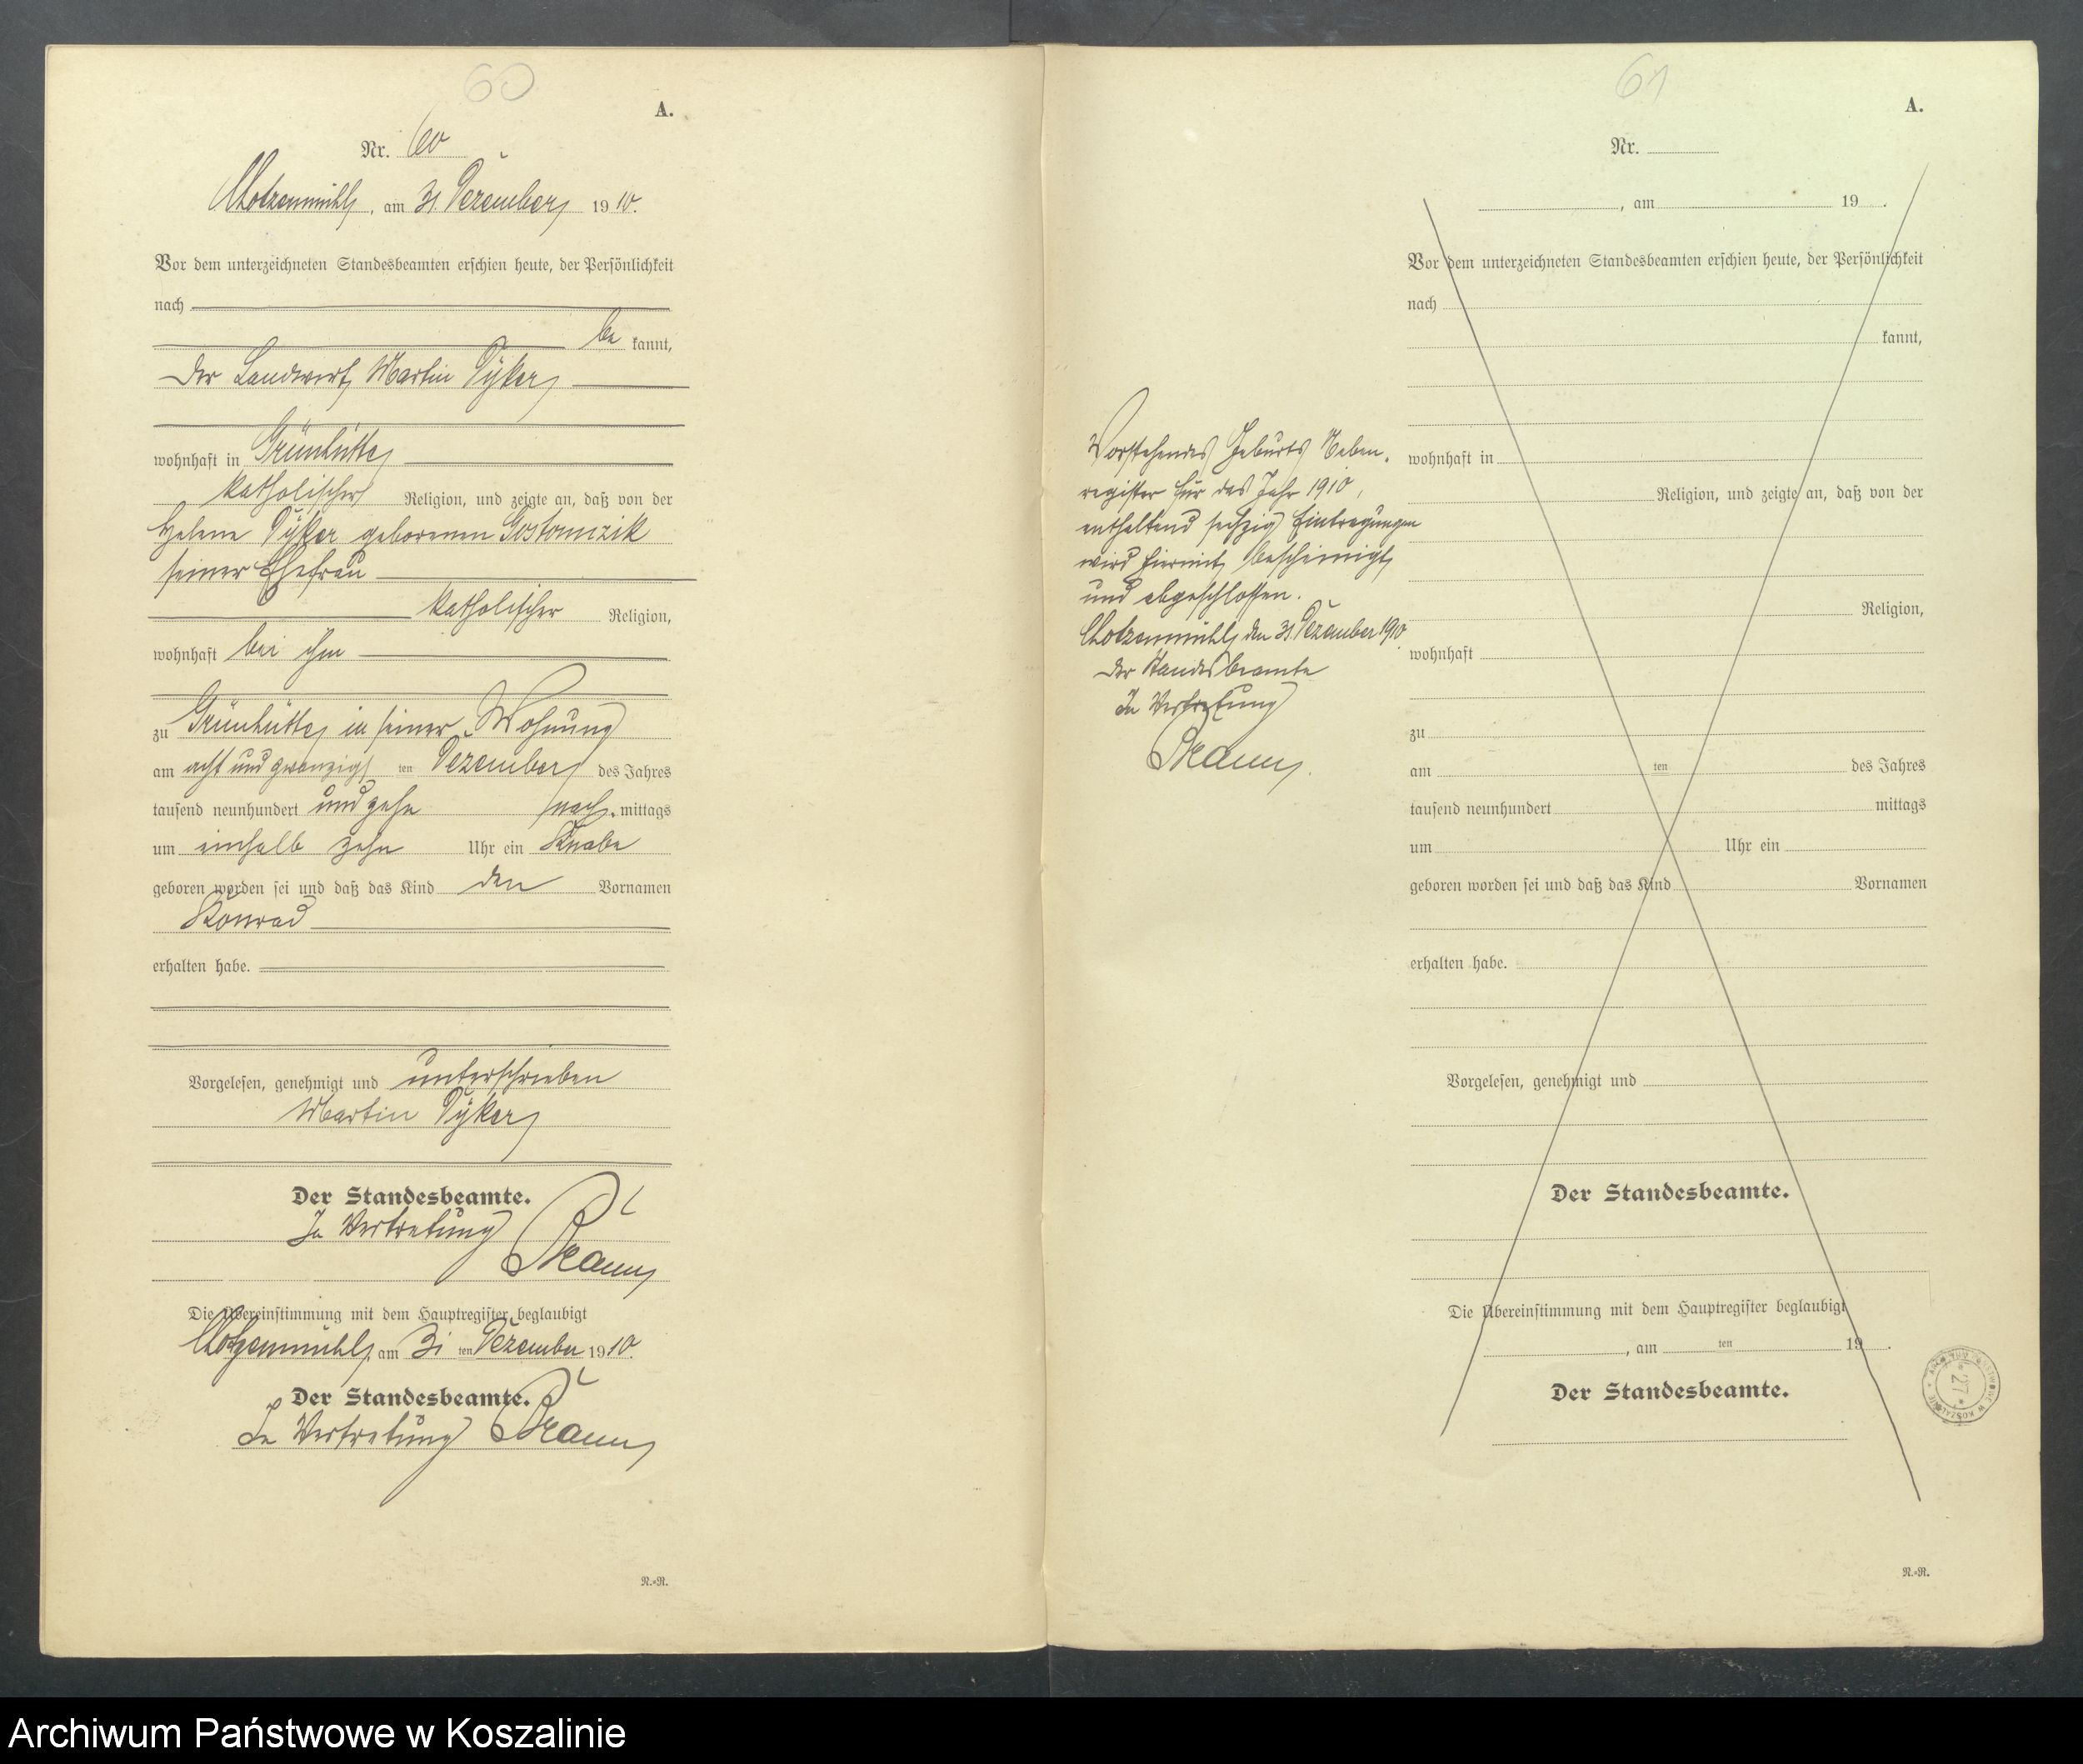 60
A.
Nr. 60
Chotzenmühl, am 31. Dezember 1910.
Vor dem unterzeichneten Standesbeamten erschien heute, der Persönlichkeit
nach
be kannt,
der Landwirt Martin Dyker
wohnhaft in Grünhütte
katholischer Religion, und zeigte an, daß von der
Helene Dyker geborenen Gostomzik
seiner Ehefrau
katholischer Religion,
wohnhaft bei ihm
zu Grünhütte in seiner Wohnung
am acht und zwanzig ten Dezember des Jahres
tausend neunhundert und zehn nach mittags
um einhalb zehn Uhr ein Knabe
geboren worden sei und daß das Kind den Vornamen
Konrad
erhalten habe.
Vorgelesen, genehmigt und unterschrieben
Martin Dyker
Der Standesbeamte.
In Vertretung
Die Übereinstimmung mit dem Hauptregister beglaubigt
Chotzenmühl, am 31 ten Dezember 1910.
Der Standesbeamte.
In Vertretung
N.=R.
61
A.
Nr.
, am 19 .
Vor dem unterzeichneten Standesbeamten erschien heute, der Persönlichkeit
nach
kannt,
wohnhaft in
Religion, und zeigte an, daß von der
Religion,
wohnhaft
zu
am ten des Jahres
tausend neunhundert mittags
um Uhr ein
geboren worden sei und daß das Kind Vornamen
erhalten habe.
Vorgelesen, genehmigt und
Der Standesbeamte.
Die Übereinstimmung mit dem Hauptregister beglaubigt
, am ten 19 .
Der Standesbeamte.
N.=R.
Vorstehendes Geburts Neben-
register für das Jahr 1910,
enthaltend sechzig Eintragungen
wird hiermit bescheinigt
und abgeschlossen.
Chotzenmühl den 31. Dezember 1910
Der Standesbeamte
In Vertretung
27
Archiwum Państwowe w Koszalinie